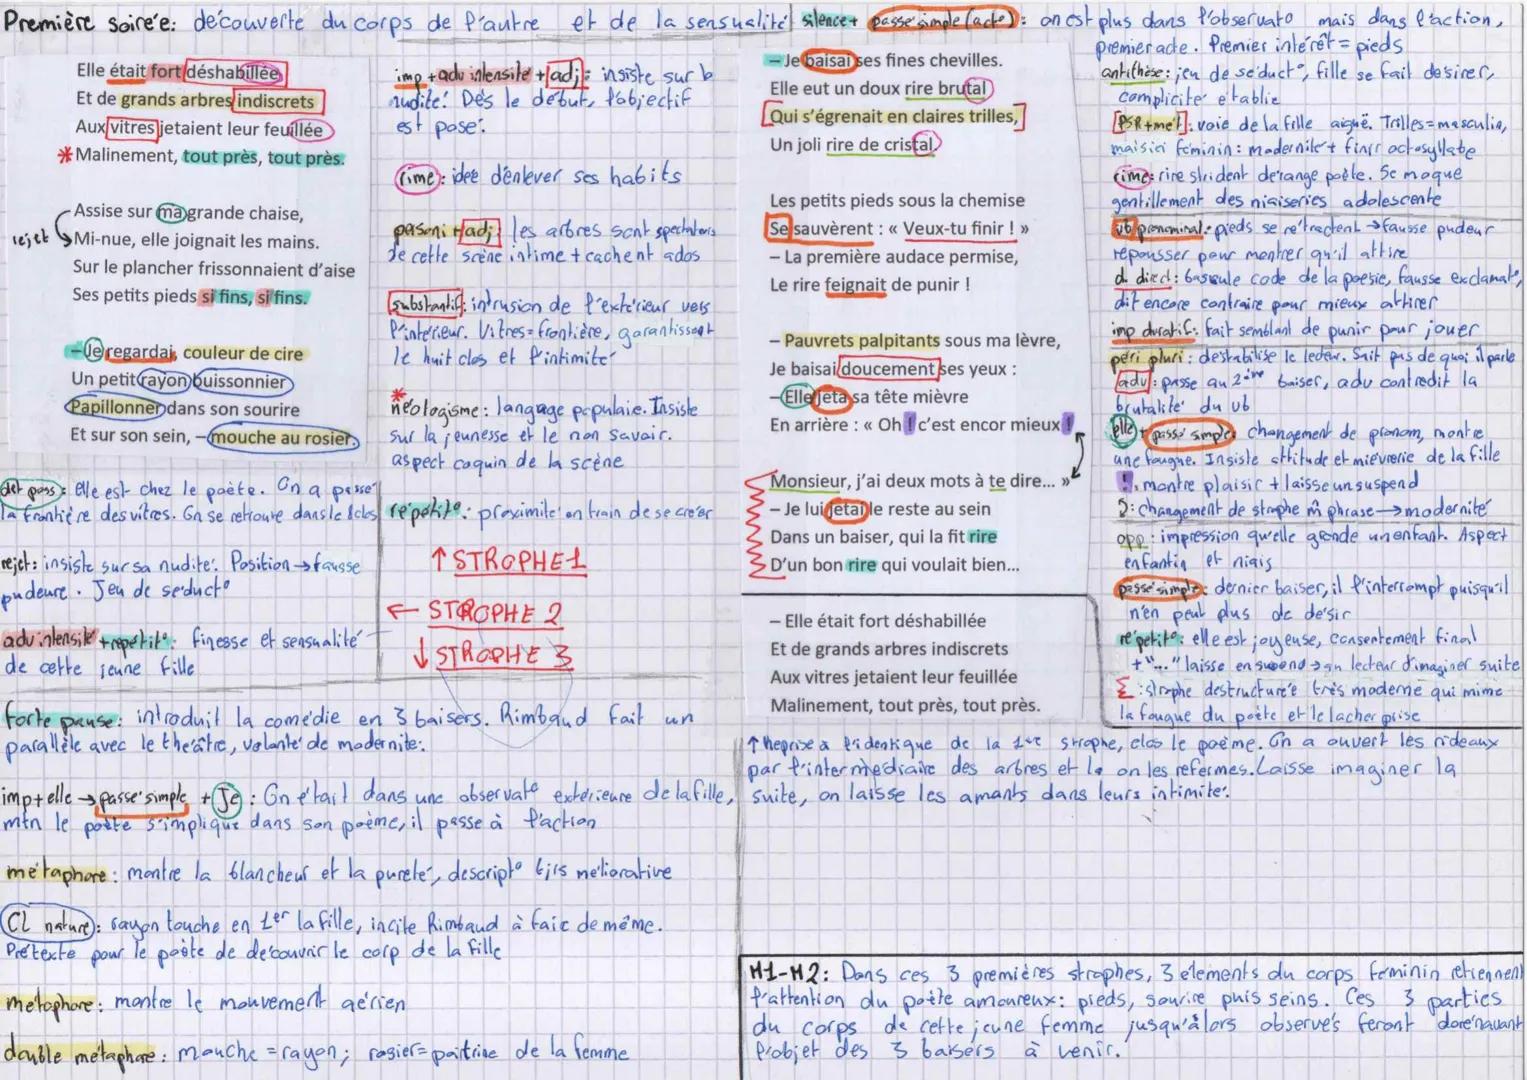 Première soirée: découverte du corps de l'autre et de la sensualité
Elle était fort déshabillée
Et de grands arbres indiscrets
Aux vitres jetaient leur feuillée
*Malinement, tout près, tout près.
rejet
Assise sur ma grande chaise,
Mi-nue, elle joignait les mains.
Sur le plancher frissonnaient d'aise
Ses petits pieds si fins, si fins.
– Je regardai, couleur de cire
Un petit rayon buissonnier
Papillonner dans son sourire
Et sur son sein, – mouche au rosier.
imp + adv intensité + adj: insiste sur la
nudité. Dès le début, l'objectif
est posé.
rime: idée d'enlever ses habits
personi + adj: les arbres sont spectateurs
de cette scène intime + cachent ados
substantif: intrusion de l'extérieur vers
l'intérieur. Vitres=frontière, garantissent
le huit clos et l'intimité
*
néologisme: langage populaire. Insiste
sur la jeunesse et le non savoir.
aspect coquin de la scène
répétit°: proximité en train de se créer
↑ STROPHE 1
← STROPHE 2
↓ STROPHE 3
det poss: Elle est chez le poète. On a passé
la frontière des vitres. On se retrouve dans le 8clos
rejet: insiste sur sa nudité. Position → fausse
pudeure. Jeu de séduct°
adv intensité + répétit°: finesse et sensualité
de cette jeune fille
forte pause: introduit la comédie en 3 baisers. Rimbaud fait un
parallèle avec le théâtre, volonté de modernité.
imp + elle → passé simple + Je: On était dans une observat° extérieure de la fille,
mtn le poète s'implique dans son poème, il passe à l'action
métaphore: montre la blancheur et la pureté, descript° tjrs méliorative
CL nature: rayon touche en 1er la fille, incite Rimbaud à faie de même.
Prétexte pour le poète de découvrir le corp de la fille
métaphore: montre le mouvement aérien
double métaphore: mouche = rayon; rosier= poitrine de la femme
silence + passé simple (acte): on est plus dans l'observat° mais dans l'action,
premier acte. Premier intérêt = pieds
– Je baisai ses fines chevilles.
Elle eut un doux rire brutal
Qui s'égrenait en claires trilles,
Un joli rire de cristal.
Les petits pieds sous la chemise
Se sauvèrent : « Veux-tu finir ! »
– La première audace permise,
Le rire feignait de punir !
– Pauvrets palpitants sous ma lèvre,
Je baisai doucement ses yeux :
– Elle jeta sa tête mièvre
En arrière : « Oh ! c'est encor mieux !
Monsieur, j'ai deux mots à te dire... »
– Je lui jetai le reste au sein
Dans un baiser, qui la fit rire
D'un bon rire qui voulait bien...
– Elle était fort déshabillée
Et de grands arbres indiscrets
Aux vitres jetaient leur feuillée
Malinement, tout près, tout près.
antithèse: jeu de séduct°, fille se fait désirer,
complicité établie
PSR + mét: voie de la fille aiguë. Trilles=masculin,
mais ici féminin: modernité + finir octosyllabe
rime: rire strident dérange poète. Se moque
gentillement des niaiseries adolescente
vb pronominal: pieds se rétractent → fausse pudeur
repousser pour montrer qu'il attire
d. direct: bascule code de la poésie, fausse exclamat°,
dit encore contraire pour mieux attirer
imp duratif: fait semblant de punir pour jouer
péri pluri: destabilise le lecteur. Sait pas de quoi il parle
adv: passe au 2ème baiser, adv contredit la
brutalité du vb
elle + passé simple: changement de pronom, montre
une fougue. Insiste attitude et mièvrerie de la fille
!: montre plaisir + laisse un suspend
: changement de strophe m̂ phrase → modernité
opp: impression qu'elle gronde un enfant. Aspect
enfantin et niais
passé simple: dernier baiser, il l'interrompt puisqu'il
n'en peut plus de désir
répétit°: elle est joyeuse, consentement final
+ "..." laisse en suspend → au lecteur d'imaginer suite
: strophe destructurée très moderne qui mime
la fougue du poète et le lacher prise
↑ Reprise à l'identique de la 1ère strophe, clos le poème. On a ouvert les rideaux
par l'intermédiaire des arbres et là on les refermes. Laisse imaginer la
suite, on laisse les amants dans leurs intimité.
M1-M2: Dans ces 3 premières strophes, 3 elements du corps féminin retiennent
l'attention du poète amoureux: pieds, sourire puis seins. Ces 3 parties
du corps de cette jeune femme jusqu'àlors observés feront dorénavant
l'objet des 3 baisers à venir.